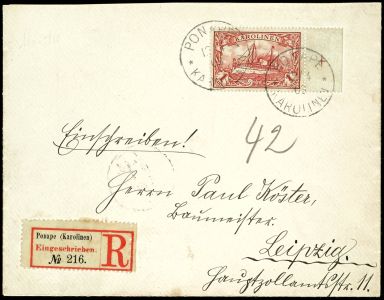 PONAPE
KAROLINEN
PONAPE
KAROLINEN
Einschreiben!
42
Herrn Paul Köster,
Baumeister.
Leipzig.
Hauptzollamtsstr. 11.
Ponape (Karolinen)
Eingeschrieben.
№ 216.
R